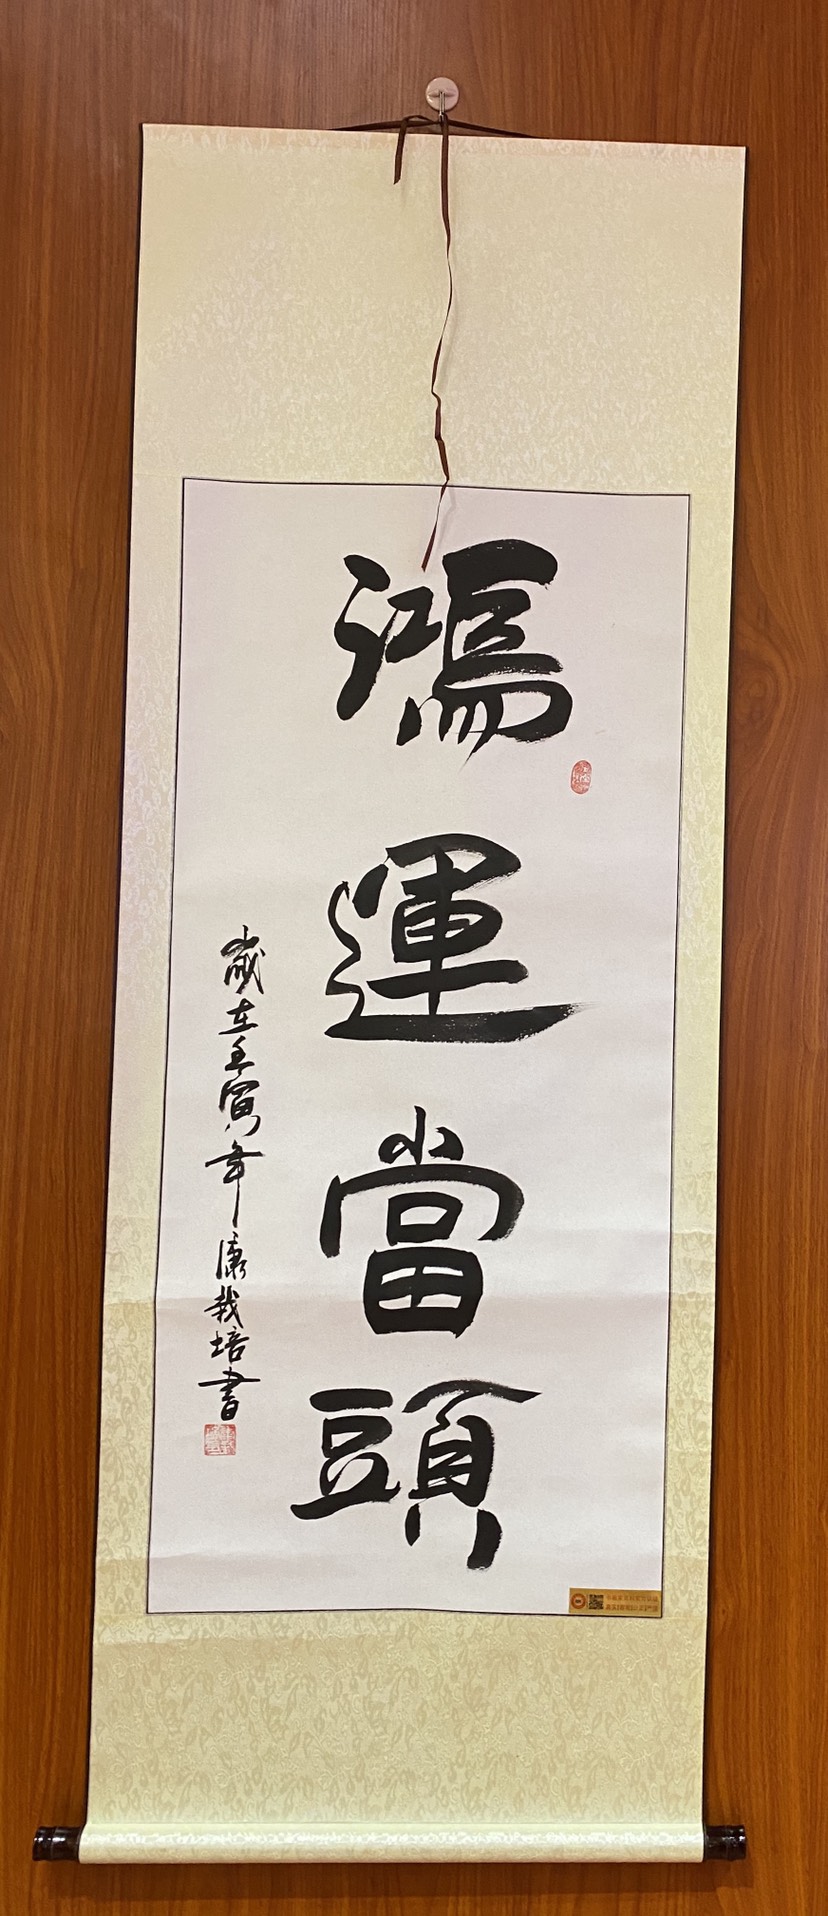 鴻運當頭
歲在壬寅年康栽培書